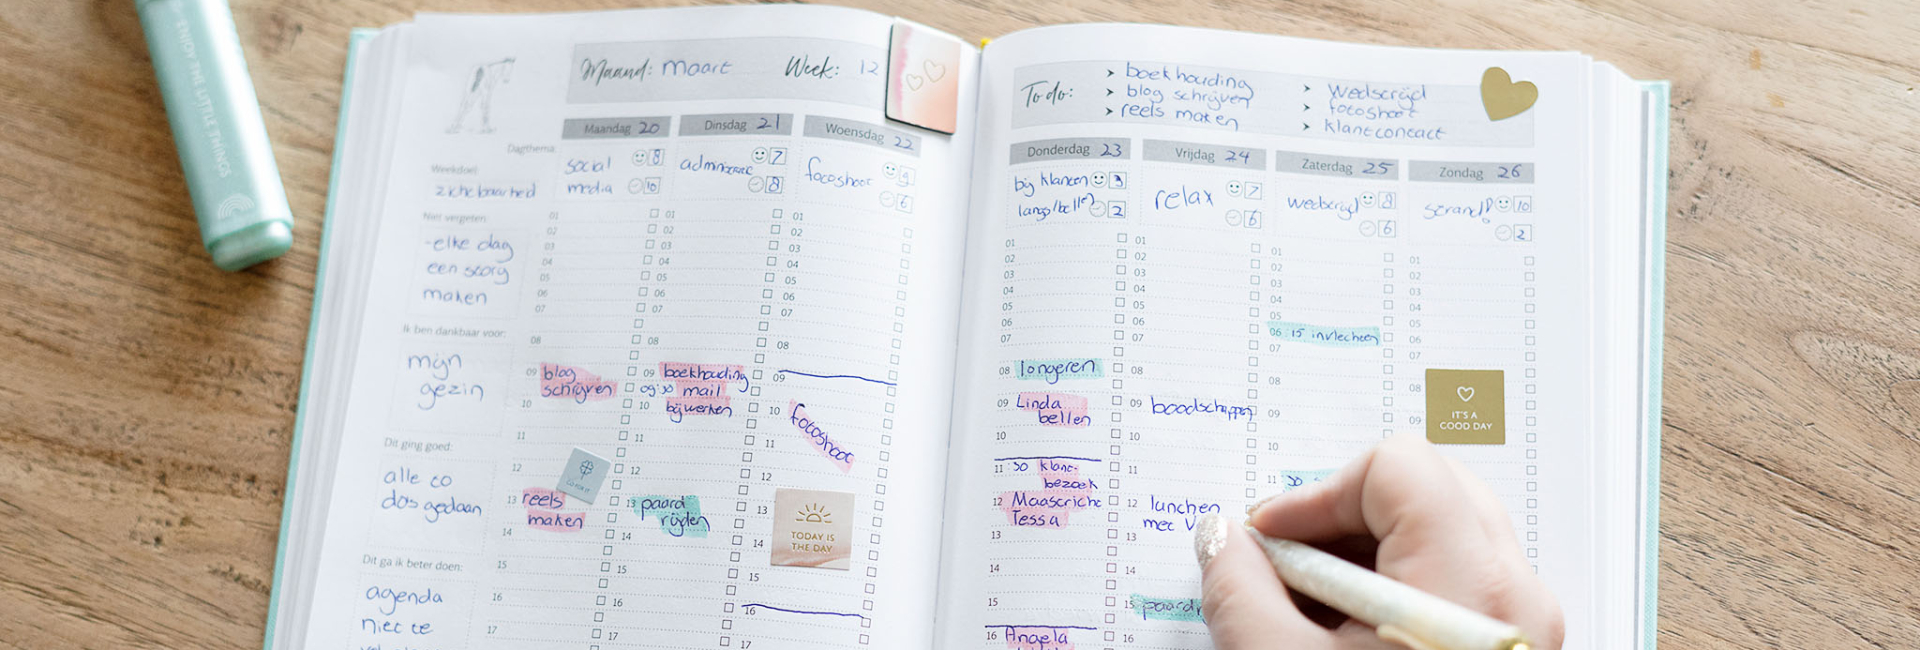 ENJOY THE LITTLE THINGS
Maand: maart
Week: 12
Dagthema:
Maandag 20
Dinsdag 21
Woensdag 22
social
media
8
10
7
8
fotoshoot
9
6
Weekdoel:
zichtbaarheid
Niet vergeten:
-elke dag
een story
maken
Ik ben dankbaar voor:
mijn
gezin
Dit ging goed:
alle to
do's gedaan
Dit ga ik beter doen:
agenda
niet te
01
02
03
04
05
06
07
08
09 blog
schrijven
10
11
12
13 reels
maken
14
15
16
17
01
02
03
04
05
06
07
08
09 boekhouding
09:30 mail
10 bijwerken
11
12
13 paard
rijden
14
16
17
01
02
03
04
05
06
07
08
09
10
fotoshoot
11
12
13
TODAY IS
THE DAY
14
15
16
17
To do:
boekhouding
blog schrijven
reels maken
wedstrijd
fotoshoot
klantcontact
Donderdag 23
Vrijdag 24
Zaterdag 25
Zondag 26
bij klanten
langs/bellen
3
2
relax
7
6
wedstrijd
8
6
strand!
10
2
01
02
03
04
05
06
07
08 longeren
09 Linda
bellen
10
11 30 klant-
bezoek
12 Maastricht
Tessa
13
14
15
16 Angela
01
02
03
04
05
06
07
08
09 boodschappen
10
11
12 lunchen
met
13
14
15
16
01
02
03
04
05
06 15 invlechten
07
08
09
10
11 30
01
02
03
04
05
06
07
08
09
IT'S A
GOOD DAY